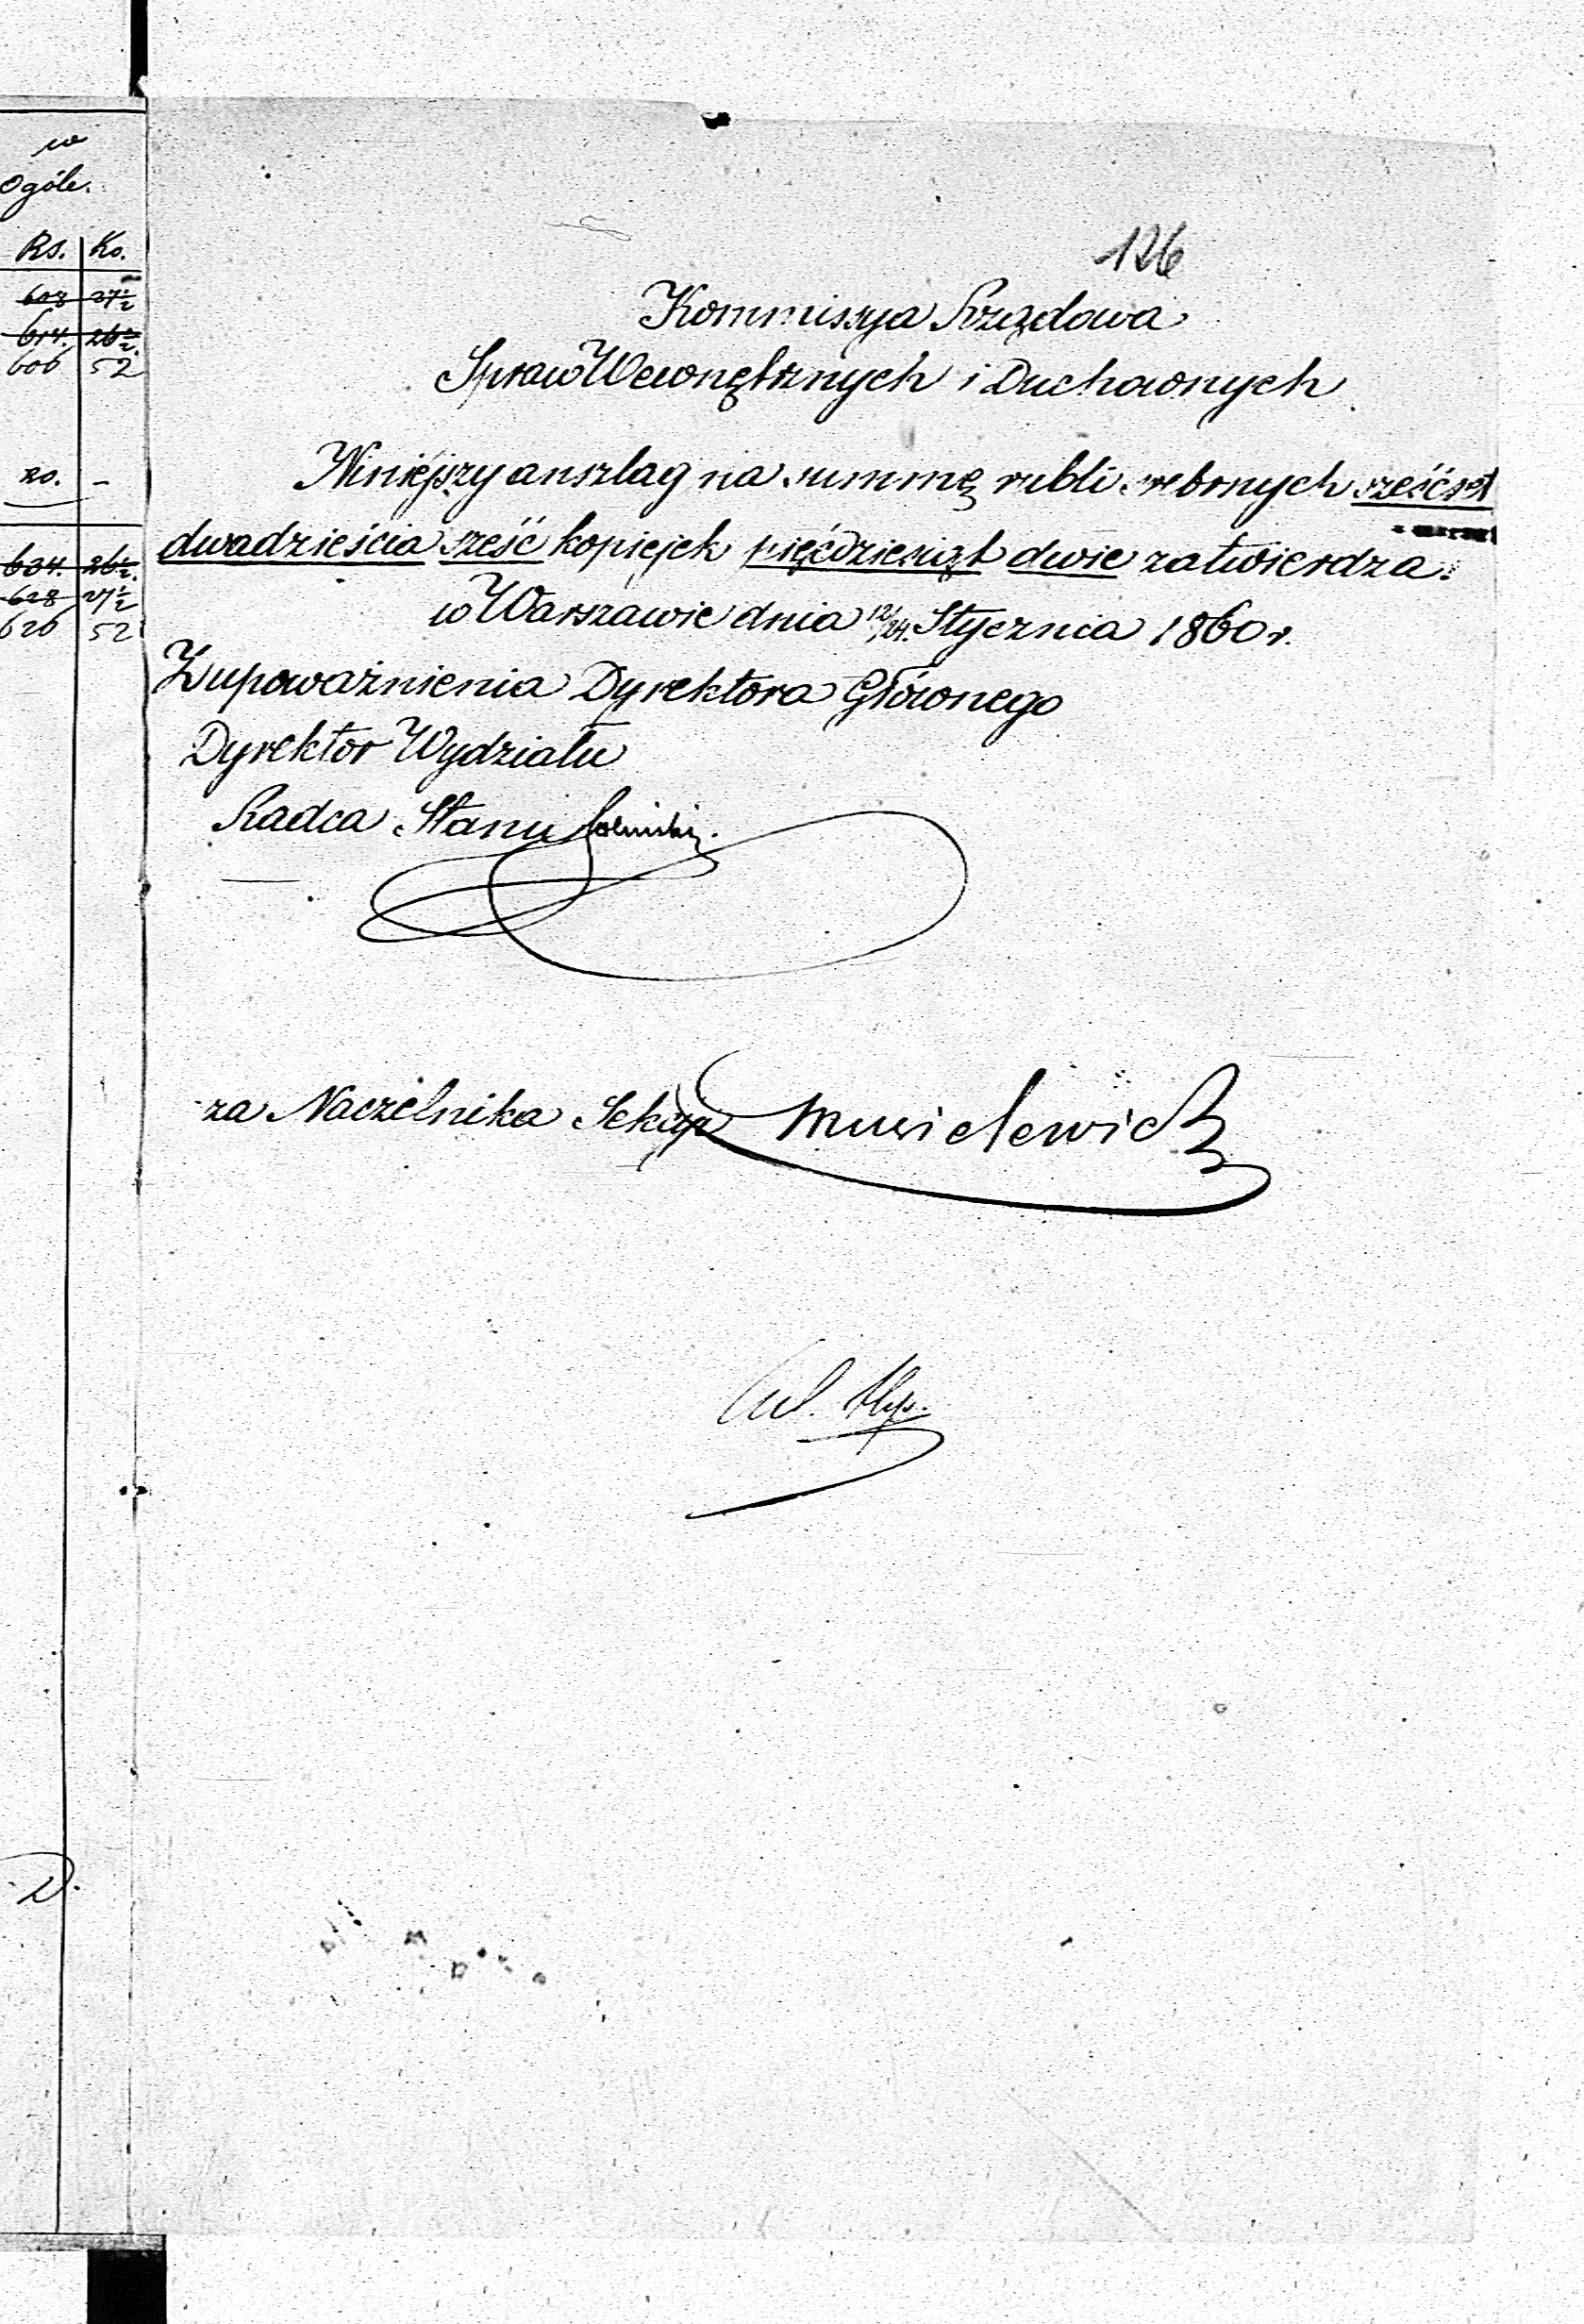 w
Ogóle.
Rs. Ko.
603 27½
614. 26½
606 52
20. -
634. 26½
628 27½
626 52
126
Kommissya Rządowa
Spraw Wewnętrznych i Duchownych
Niniejszy anszlag na summę rubli srebrnych sześćset
dwadzieścia sześć kopiejek pięćdziesiąt dwie zatwierdza.
w Warszawie dnia 12/24. Stycznia 1860 r.
Z upoważnienia Dyrektora Głównego
Dyrektor Wydziału
Radca Stanu
za Naczelnika Sekcyi